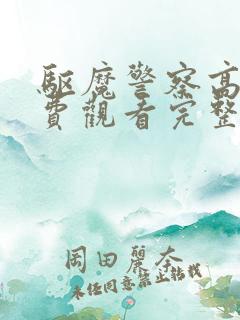 驅魔警察高
費觀看完整
岡田麗奈
未经同意禁止转载